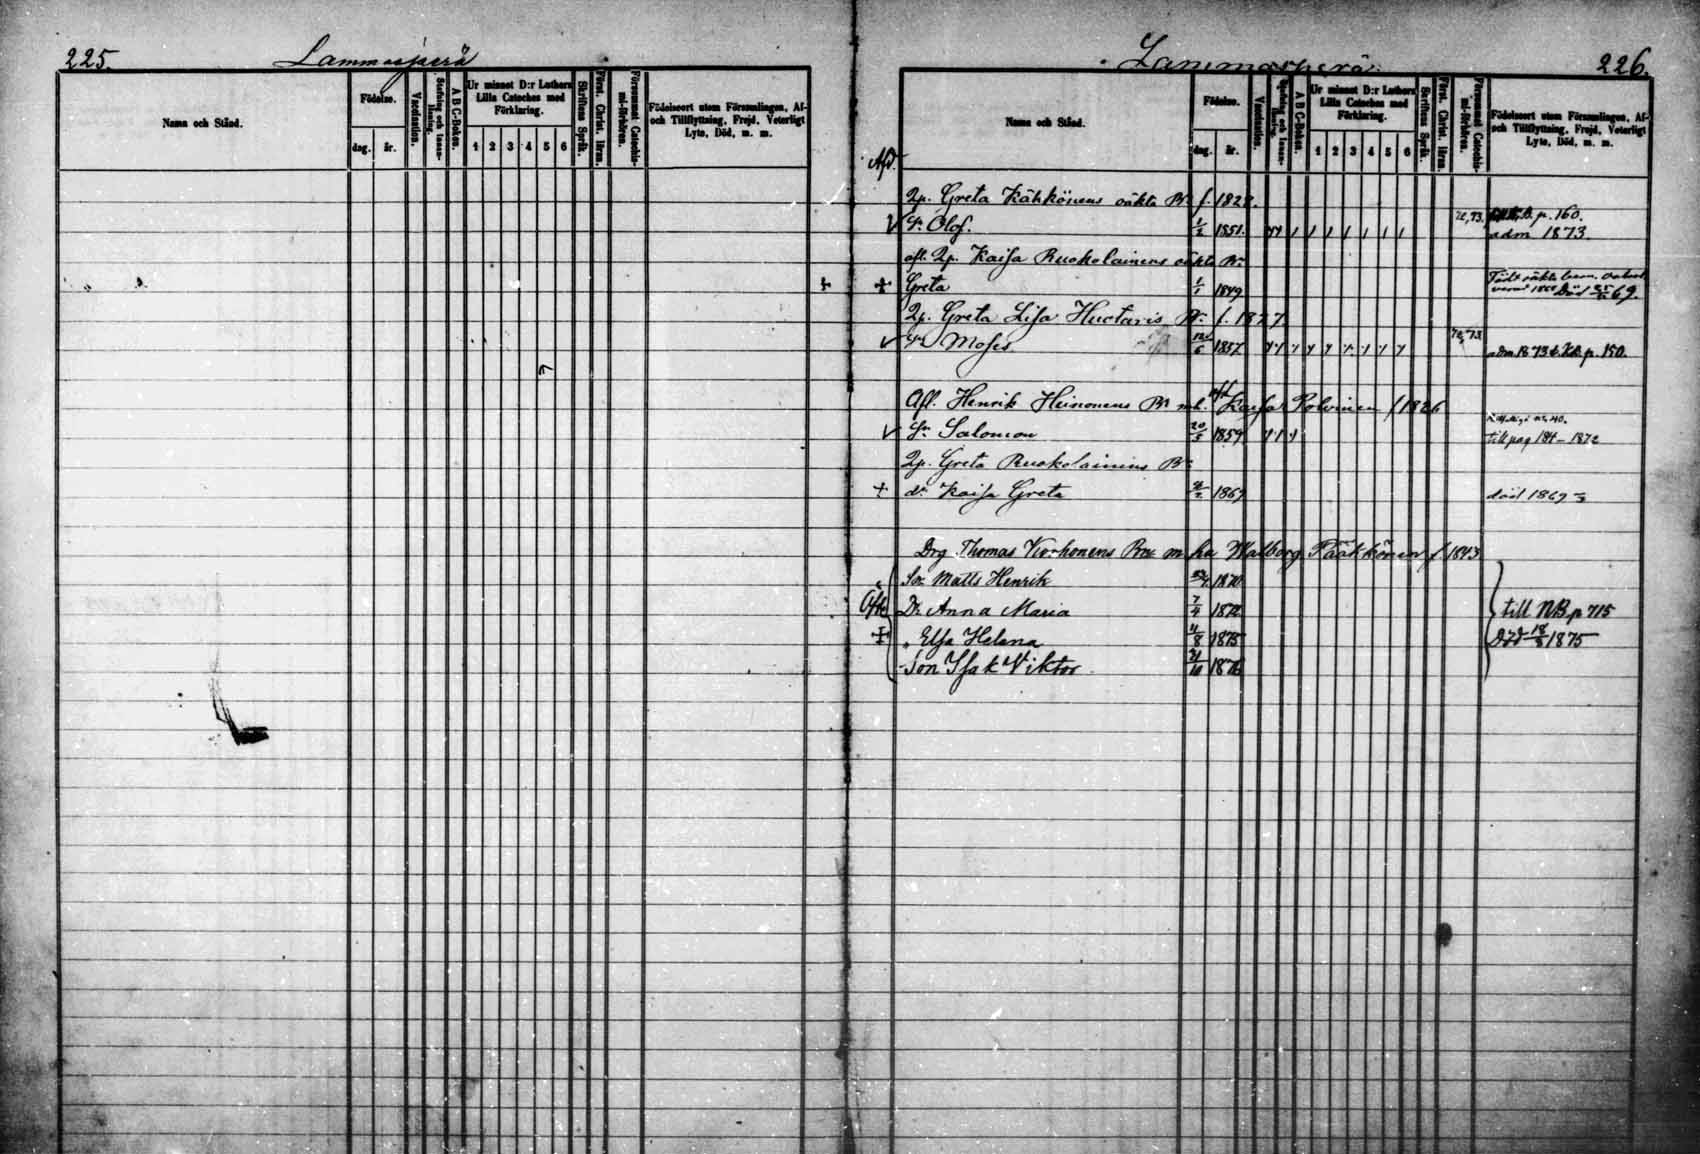 225. Lammasperä
Namn och Stånd.
Födelse.
dag. år.
Vaccination.
Stafning och Innanläsning.
A B C-Boken.
Ur minnet D:r Luthers Lilla Cateches med Förklaring.
1 2 3 4 5 6
Skriftens Språk.
Först. Christ. läran.
Försummat Catechismi-förhören.
Födelseort utom Församlingen, Af- och Tillflyttning, Frejd, Veterligt Lyte, Död, m. m.
Lammasperä. 226.
Namn och Stånd.
Födelse.
dag. år.
Vaccination.
Stafning och Innanläsning.
A B C-Boken.
Ur minnet D:r Luthers Lilla Cateches med Förklaring.
1 2 3 4 5 6
Skriftens Språk.
Först. Christ. läran.
Försummat Catechismi-förhören.
Födelseort utom Församlingen, Af- och Tillflyttning, Frejd, Veterligt Lyte, Död, m. m.
Qp. Greta Kähkönens oäkta Bn f.
Sn Olof. 1851. 72,73. p. 160.
adm 1873.
afl. Qp. Kaisa Ruokolainens oäkta Bn
+ + Greta 1/1 1849 Död 69.
Qp. Greta Lisa Huotaris Bn f. 1827.
Sn Moses 1857 72,73 adm. 1873 p. 150.
Afl. Henrik Heinonens Bn Kaisa Polvinen f 1826
Sn Salomon 1859 till pag 184 - 1872
Qp. Greta Ruokolainens Bn
+ dr Kaisa Greta 1869 död 1869
Drg Thomas Korhonens Bn m hu Walborg Pääkkönen f 1843
Son Matts Henrik 1870
Dr Anna Maria 7/4 1872 till NB p 715
+ " Elsa Helena 1875 Död 18/8 1875
Son Isak Viktor 1876